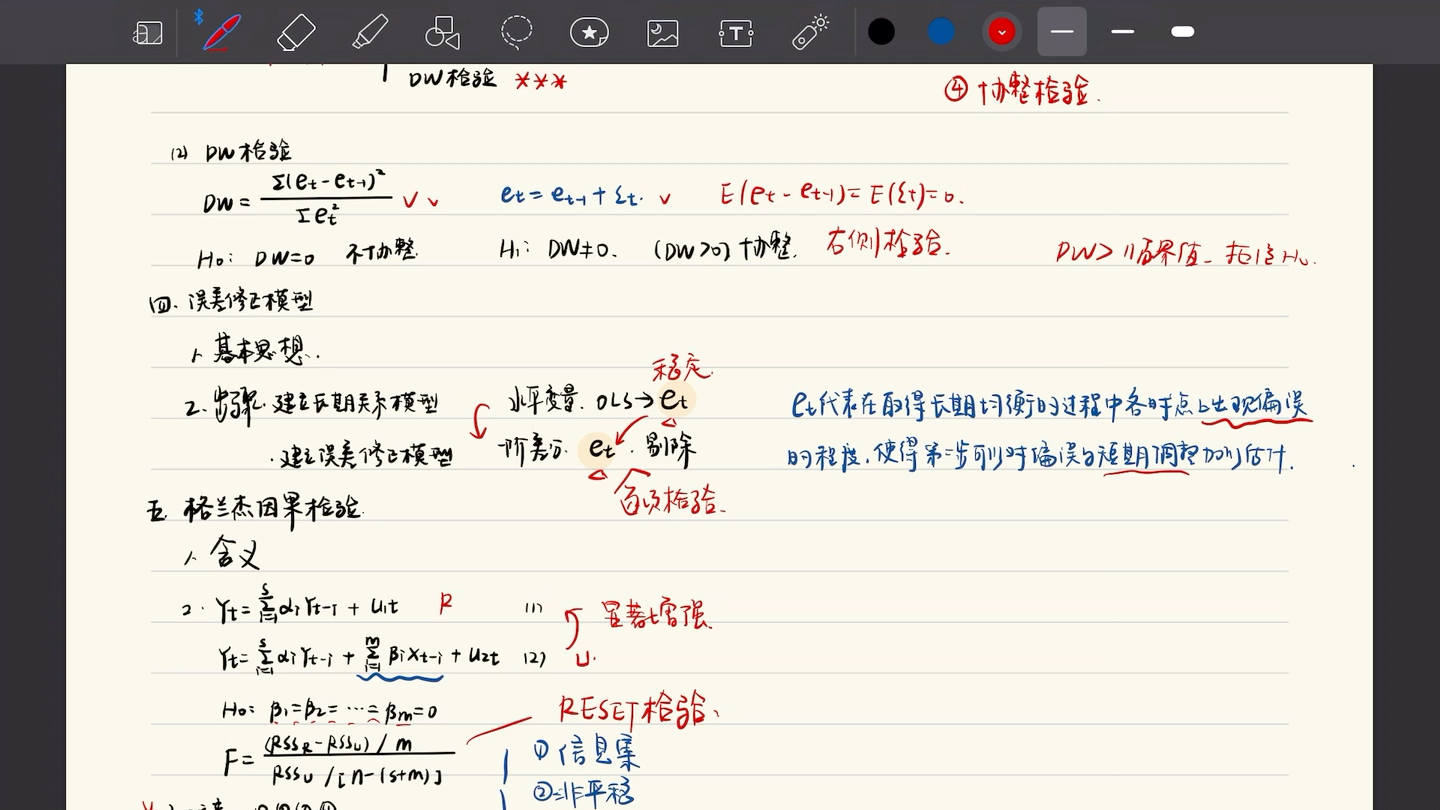 DW检验 ***
④ 协整检验.
(2) DW检验
DW = Σ(et - et-1)² / Σet²
et = et-1 + εt.
E(et - et-1) = E(εt) = 0.
H0: DW=0 不协整
H1: DW≠0. (DW>0) 协整.
右侧检验.
DW > 临界值. 拒绝H0.
四. 误差修正模型
1. 基本思想.
2. 步骤. 建立长期关系模型
水平变量. OLS→et
稳定.
· 建立误差修正模型
一阶差分. et. 剔除
逐项检验.
et代表在取得长期均衡的过程中各时点上出现偏误
的程度,使得第二步可以对偏误的短期调整加以估计.
五. 格兰杰因果检验
1. 含义
2. Yt = Σ(i=1→s) αiYt-i + u1t R (1)
显著增强.
Yt = Σ(i=1→s) αiYt-i + Σ(i=1→m) βiXt-i + u2t (2) U.
H0: β1=β2=…=βm=0
RESET检验、
F = (RSSR - RSSU) / m / RSSU / [n-(s+m)]
① 信息集
② 非平稳
T